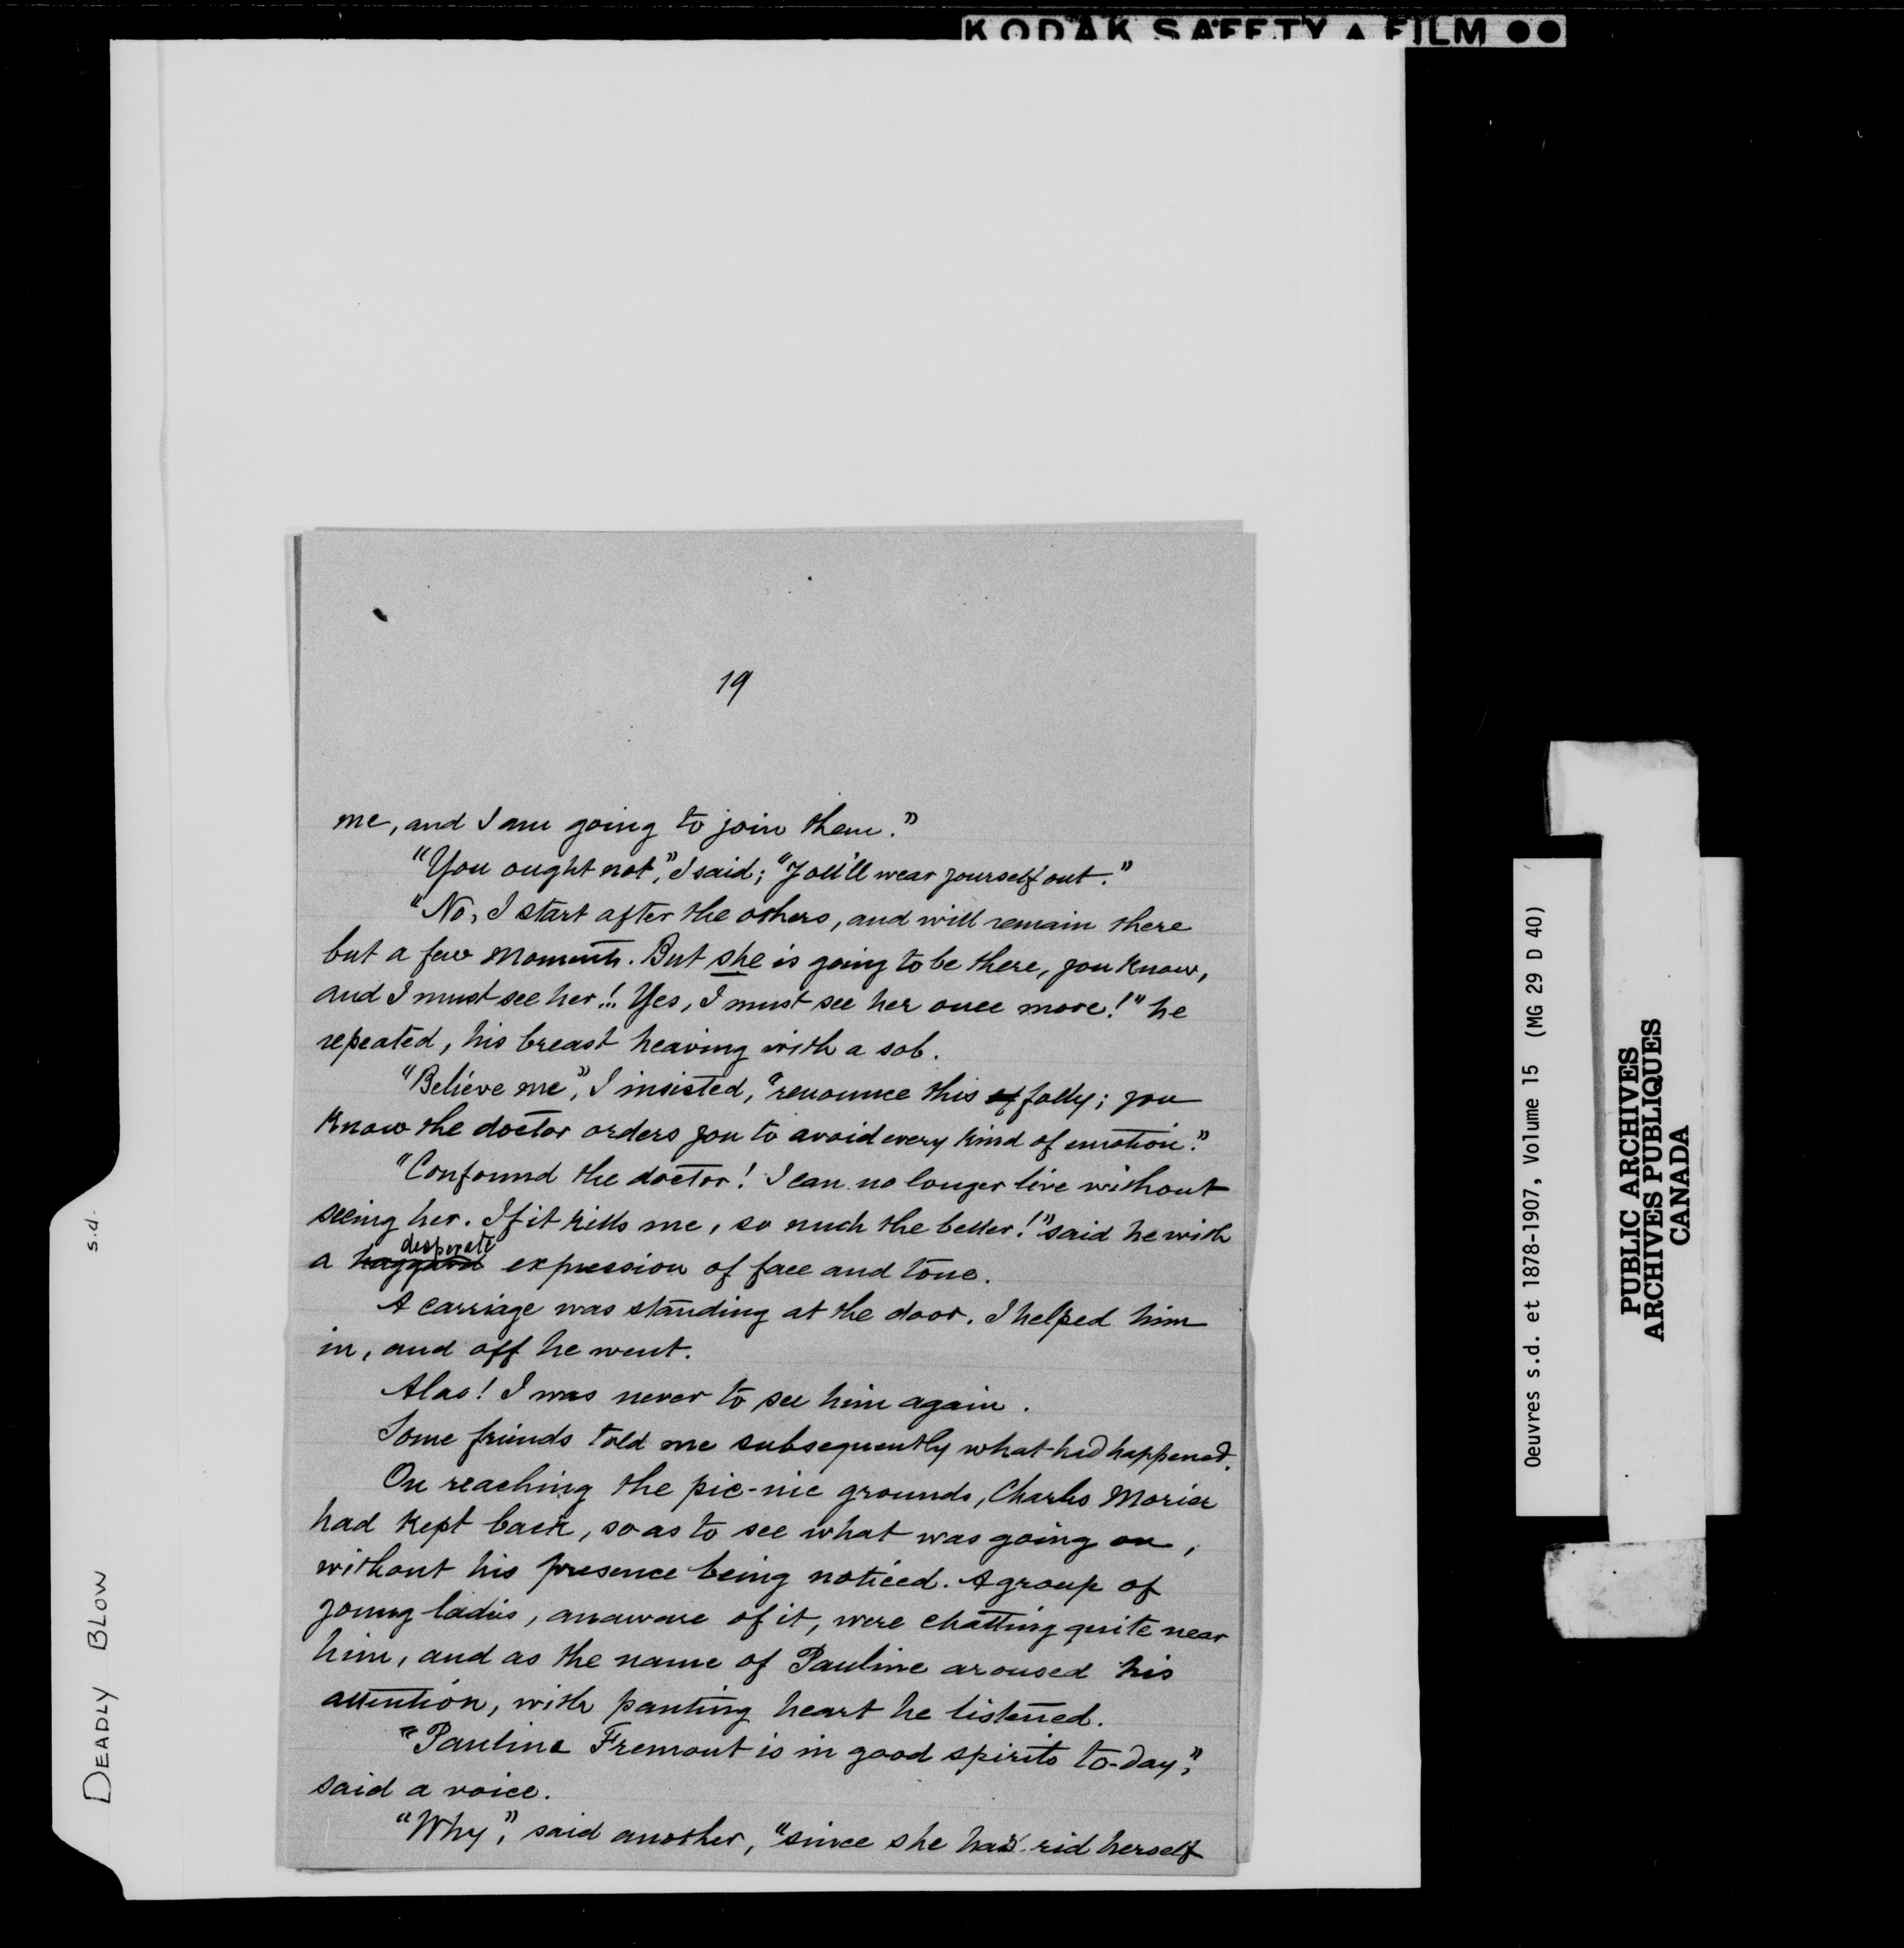 KODAK SAFETY ▲ FILM ●●
19
me, and I am going to join them."
"You ought not," I said; "You'll wear yourself out."
"No, I start after the others, and will remain there
but a few moments. But she is going to be there, you know,
and I must see her!.. Yes, I must see her once more!" he
repeated, his breast heaving with a sob.
"Believe me," I insisted, "renounce this folly; you
know the doctor orders you to avoid every kind of emotion."
"Confound the doctor! I can no longer live without
seeing her. If it kills me, so much the better!" said he with
desperate
a haggard expression of face and tone.
A carriage was standing at the door. I helped him
in, and off he went.
Alas! I was never to see him again.
Some friends told me subsequently what had happened.
On reaching the pic-nic grounds, Charles Morier
had kept back, so as to see what was going on,
without his presence being noticed. A group of
young ladies, unaware of it, were chatting quite near
him, and as the name of Pauline aroused his
attention, with panting heart he listened.
"Pauline Fremont is in good spirits to-day,"
said a voice.
"Why," said another, "since she has rid herself
DEADLY BLOW
s.d.
Oeuvres s.d. et 1878-1907, Volume 15 (MG 29 D 40)
PUBLIC ARCHIVES
ARCHIVES PUBLIQUES
CANADA